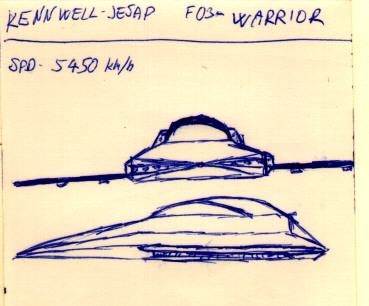 KENNWELL-JESAP F03- WARRIOR
SPD- 5450 kh/h